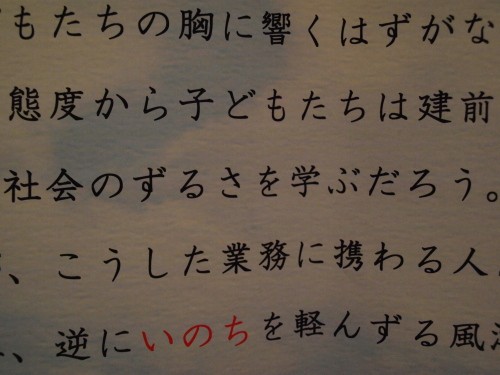 もたちの胸に響くはずがな
態度から子どもたちは建前
社会のずるさを学ぶだろう。
、こうした業務に携わる人
、逆にいのちを軽んずる風